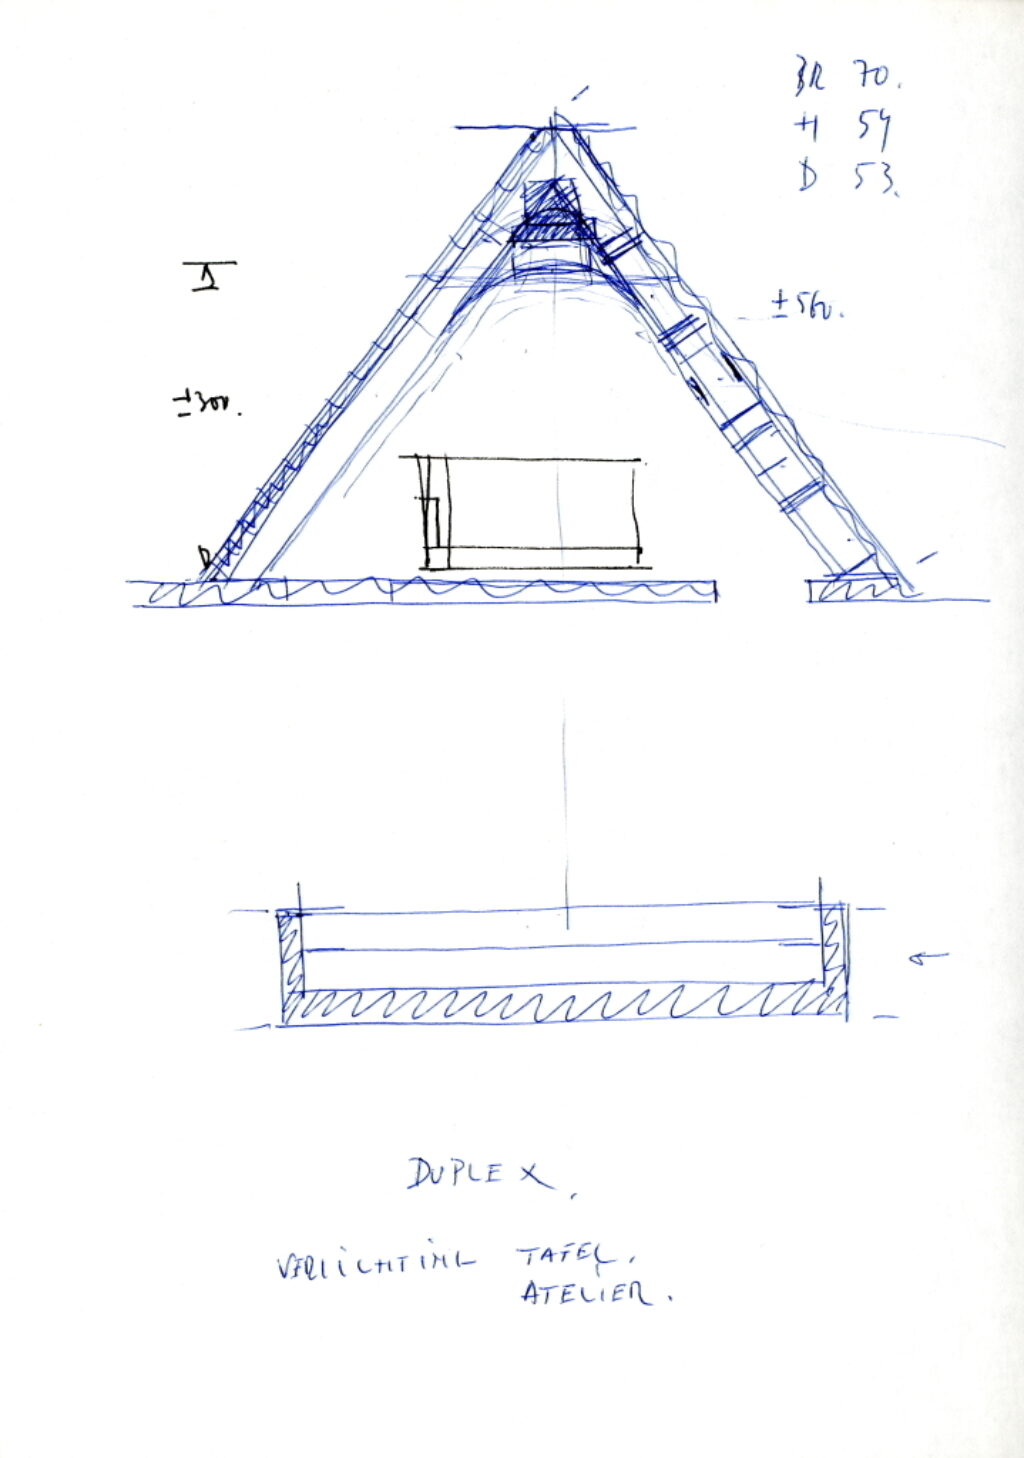 BR 70.
H 54
D 53.
±560.
±300.
DUPLEX.
VERLICHTING TAFEL.
ATELIER.